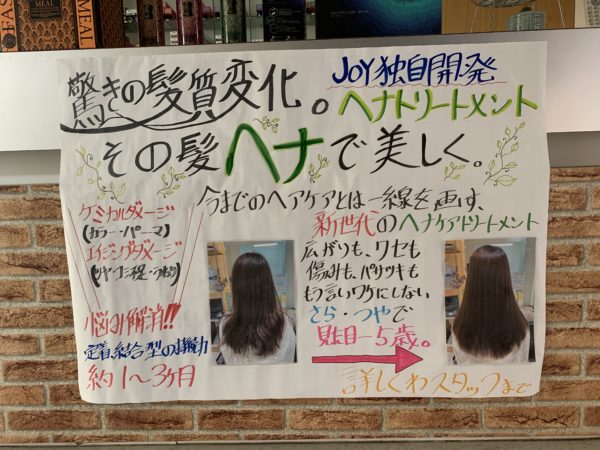 MEAL
MEAL
驚きの髪質変化。
JOY独自開発
ヘナトリートメント
その髪ヘナで美しく。
今までのヘアケアとは一線を画す、
新世代のヘナケアトリートメント
ケミカルダメージ
(カラー・パーマ)
エイジングダメージ
広がりも、クセも
傷みも、パサツキも
もう言いワケにしない
さら・つやで
見た目−5歳。
悩み解消!!
定着、結合型の持続力
約1〜3ヶ月
詳しくわスタッフまで